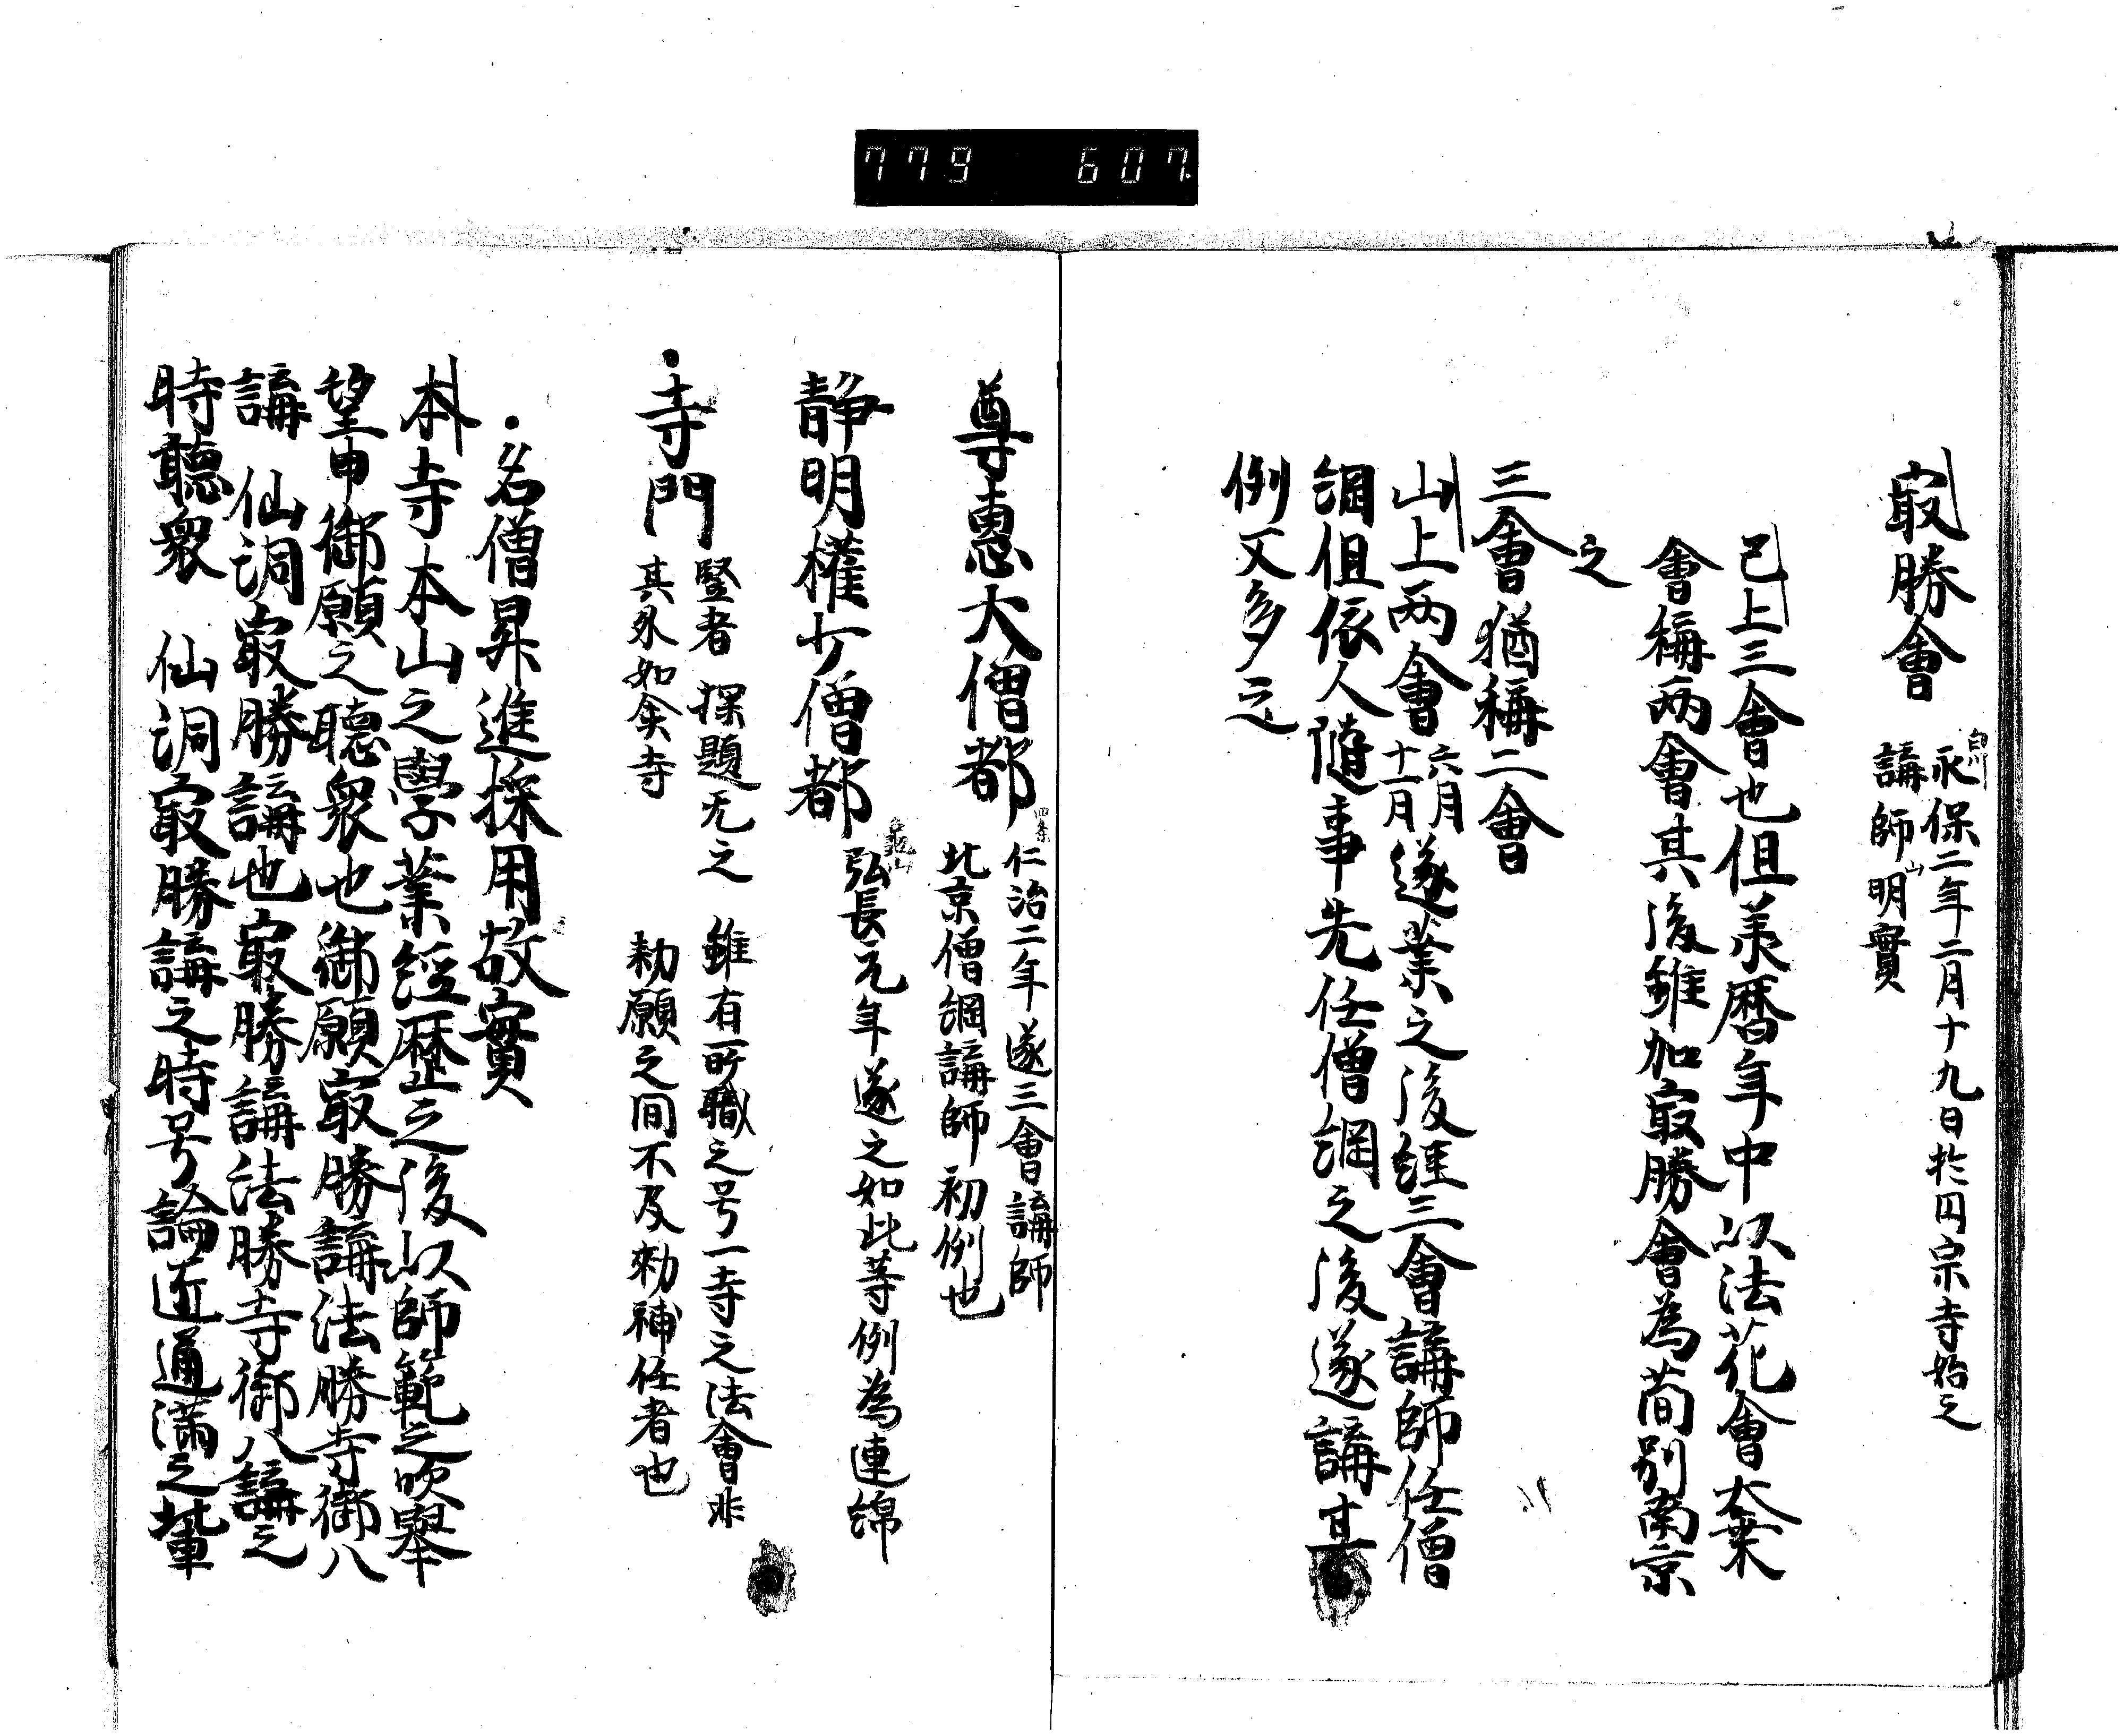 779 607
冣勝會
白川
永保二年二月十九日於円宗寺始之
講師山明實
已上三會也但羕曆年中以法花會大乗
會稱兩會其後雖加冣勝會為蕳別南京
三會猶稱二會
之
山上兩會六月十一月遂業之後経三會講師任僧
綱但依人隨事先任僧綱之後遂講其
例又多之
尊惠大僧都
四条
仁治二年遂三會講師
北京僧綱講師初例也
静明權少僧都
龜山
弘長元年遂之如此等例為連綿
寺門
竪者 探題无之 雖有所職之号一寺之法會非
其外如矣寺 勅願之间不及勅補任者也
名僧昇進採用故實
本寺本山之學業経歷之後以師範之吹舉
望申御願之聴衆也御願冣勝講法勝寺御八
講 仙洞冣勝講也冣勝講法勝寺御八講之
時聽衆 仙洞冣勝講之時号論匠通滿之輩